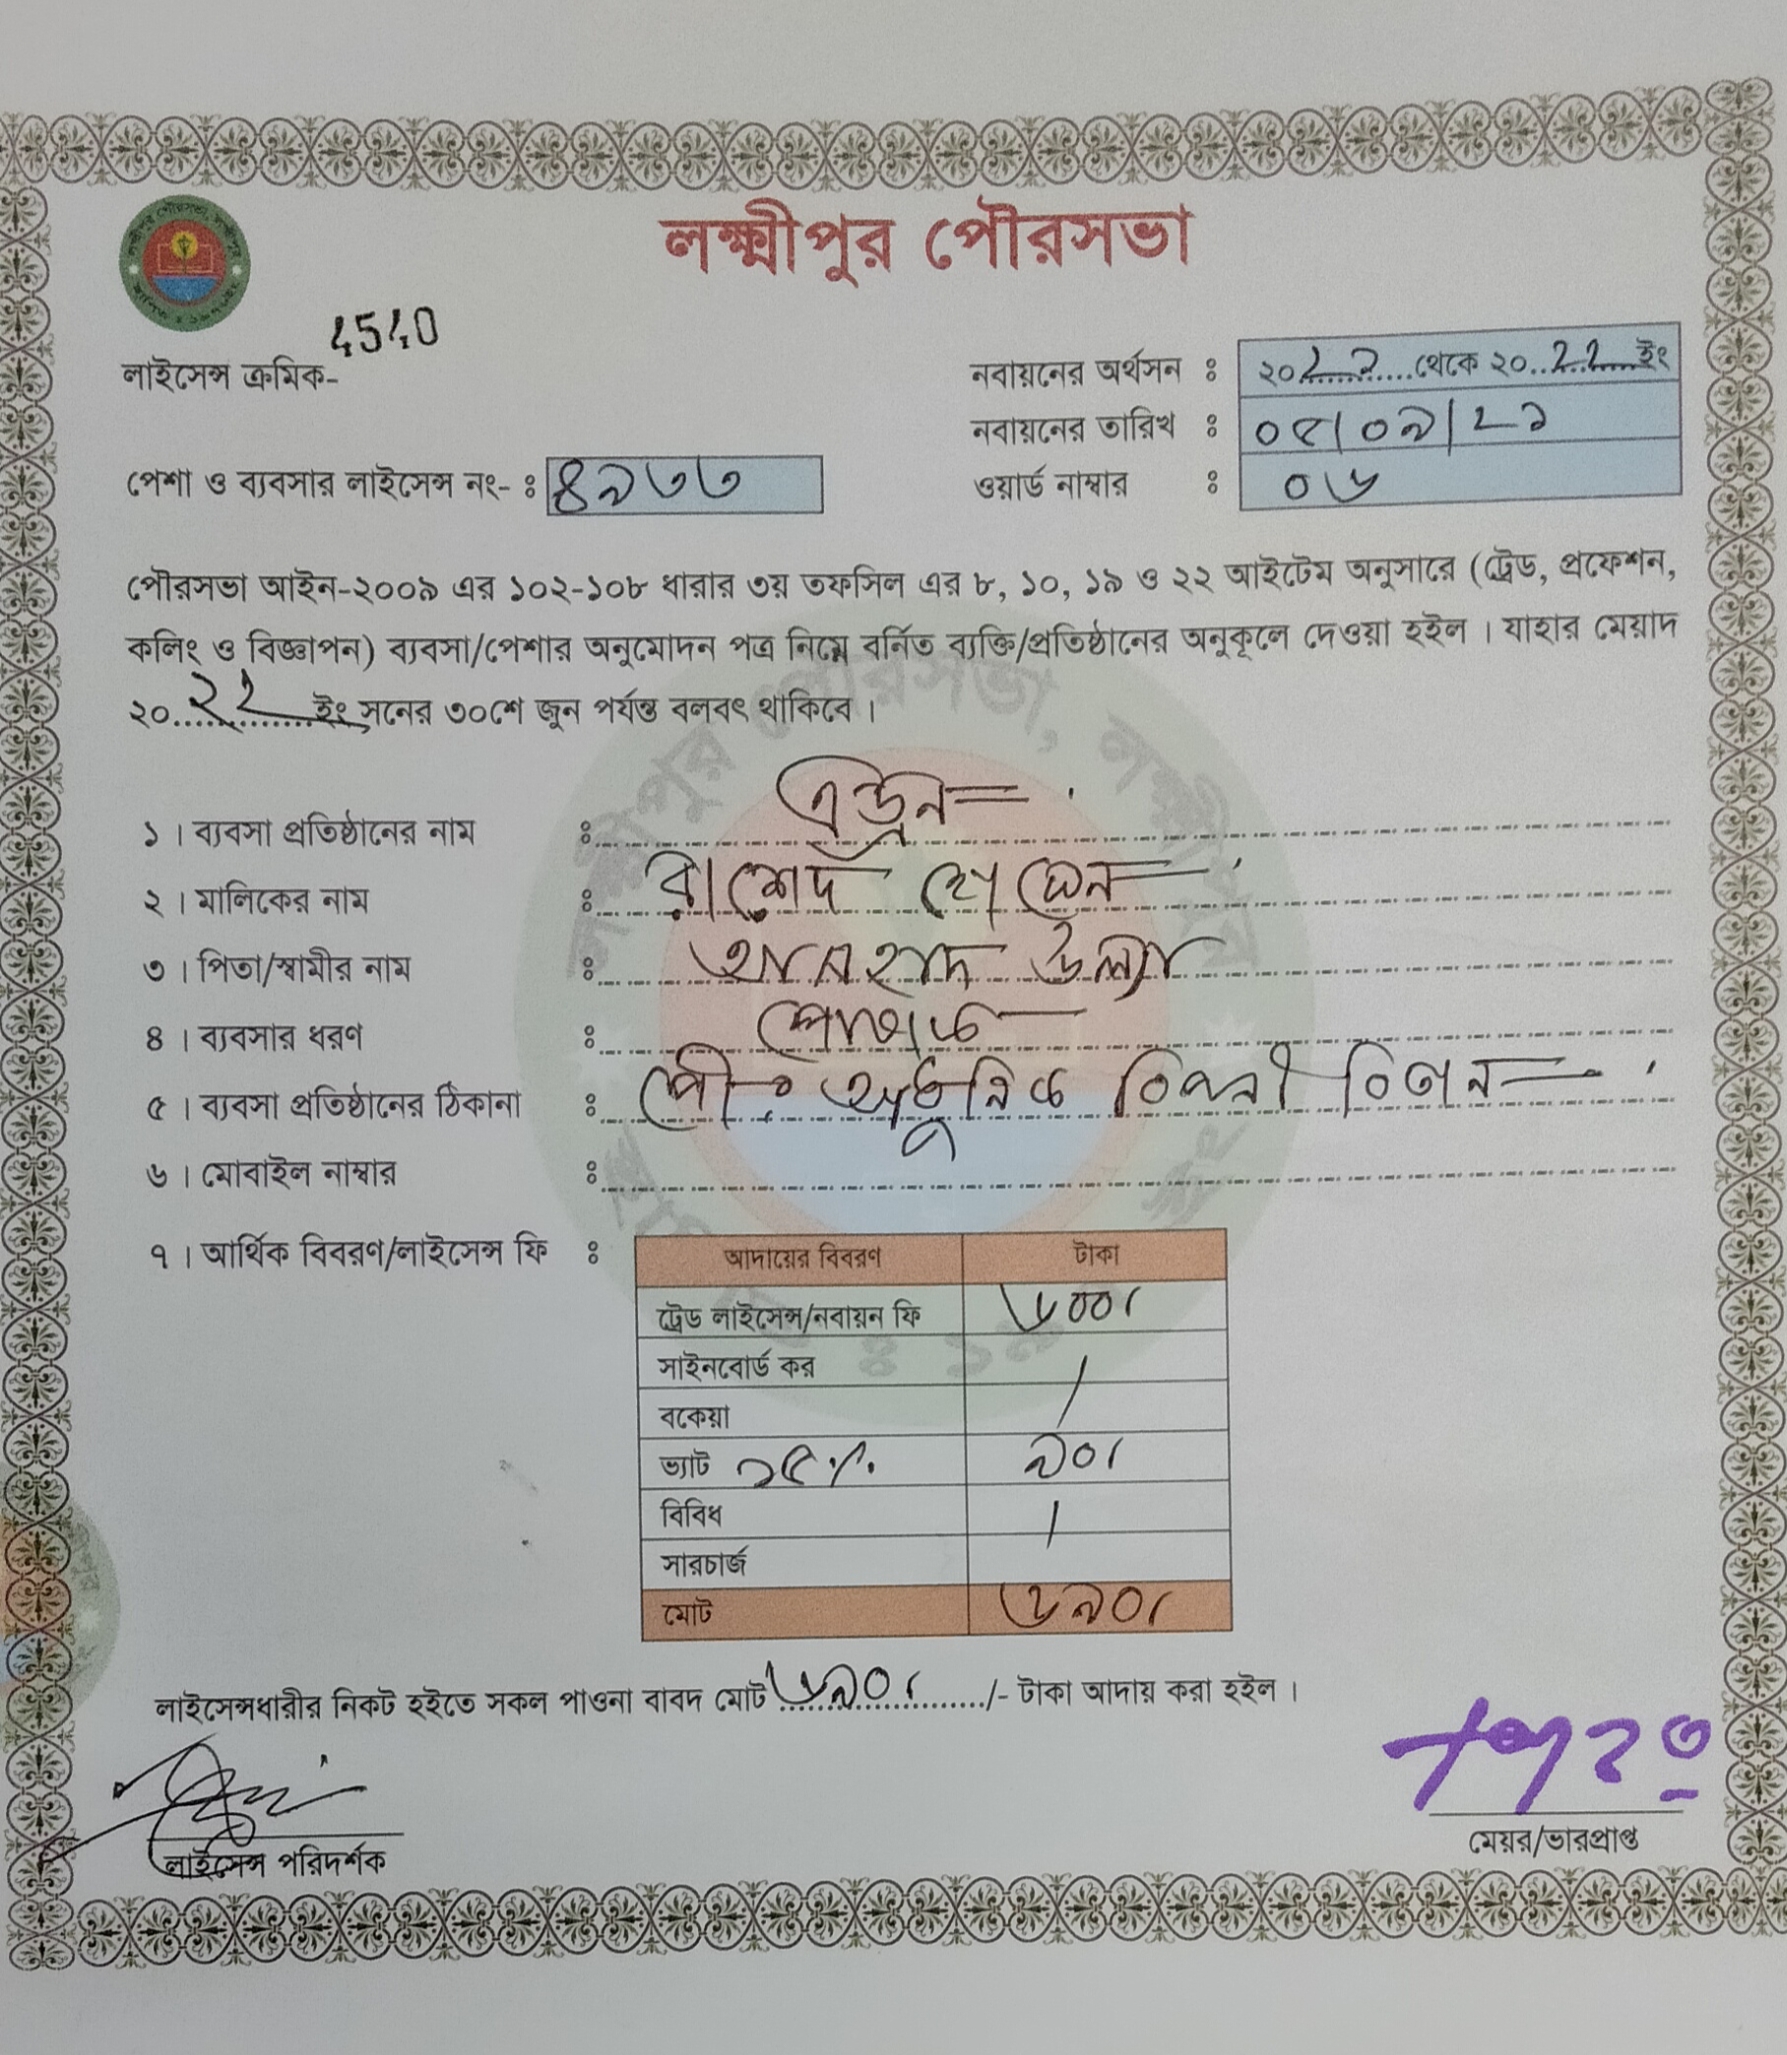 লক্ষ্মীপুর পৌরসভা
4540
লাইসেন্স ক্রমিক-
নবায়নের অর্থসন ঃ ২০২১ থেকে ২০২২ ইং
নবায়নের তারিখ ঃ ০৫/০৯/২১
পেশা ও ব্যবসার লাইসেন্স নং- ঃ ৪৯৩৩
ওয়ার্ড নাম্বার ঃ ০৬
পৌরসভা আইন-২০০৯ এর ১০২-১০৮ ধারার ৩য় তফসিল এর ৮, ১০, ১৯ ও ২২ আইটেম অনুসারে (ট্রেড, প্রফেশন,
কলিং ও বিজ্ঞাপন) ব্যবসা/পেশার অনুমোদন পত্র নিম্নে বর্নিত ব্যক্তি/প্রতিষ্ঠানের অনুকূলে দেওয়া হইল । যাহার মেয়াদ
২০২২ ইং সনের ৩০শে জুন পর্যন্ত বলবৎ থাকিবে ।
১ । ব্যবসা প্রতিষ্ঠানের নাম ঃ
২ । মালিকের নাম ঃ রাশেদ হোসেন
৩ । পিতা/স্বামীর নাম ঃ উল্যা
৪ । ব্যবসার ধরণ ঃ পোষাক
৫ । ব্যবসা প্রতিষ্ঠানের ঠিকানা ঃ পৌর আধুনিক বিপনী বিতান
৬ । মোবাইল নাম্বার ঃ
৭ । আর্থিক বিবরণ/লাইসেন্স ফি ঃ
আদায়ের বিবরণ টাকা
ট্রেড লাইসেন্স/নবায়ন ফি ৬০০/
সাইনবোর্ড কর /
বকেয়া
ভ্যাট ১৫% ৯০/
বিবিধ /
সারচার্জ
মোট ৬৯০/
লাইসেন্সধারীর নিকট হইতে সকল পাওনা বাবদ মোট ৬৯০/ /- টাকা আদায় করা হইল ।
লাইসেন্স পরিদর্শক
মেয়র/ভারপ্রাপ্ত